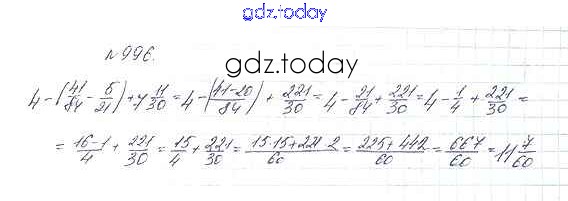 gdz.today
№996.
gdz.today
4-(41/84-5/21)+7 11/30=4-(41-20/84)+221/30=4-21/84+221/30=4-1/4+221/30=
=16-1/4+221/30=15/4+221/30=15·15+221·2/60=225+442/60=667/60=11 7/60